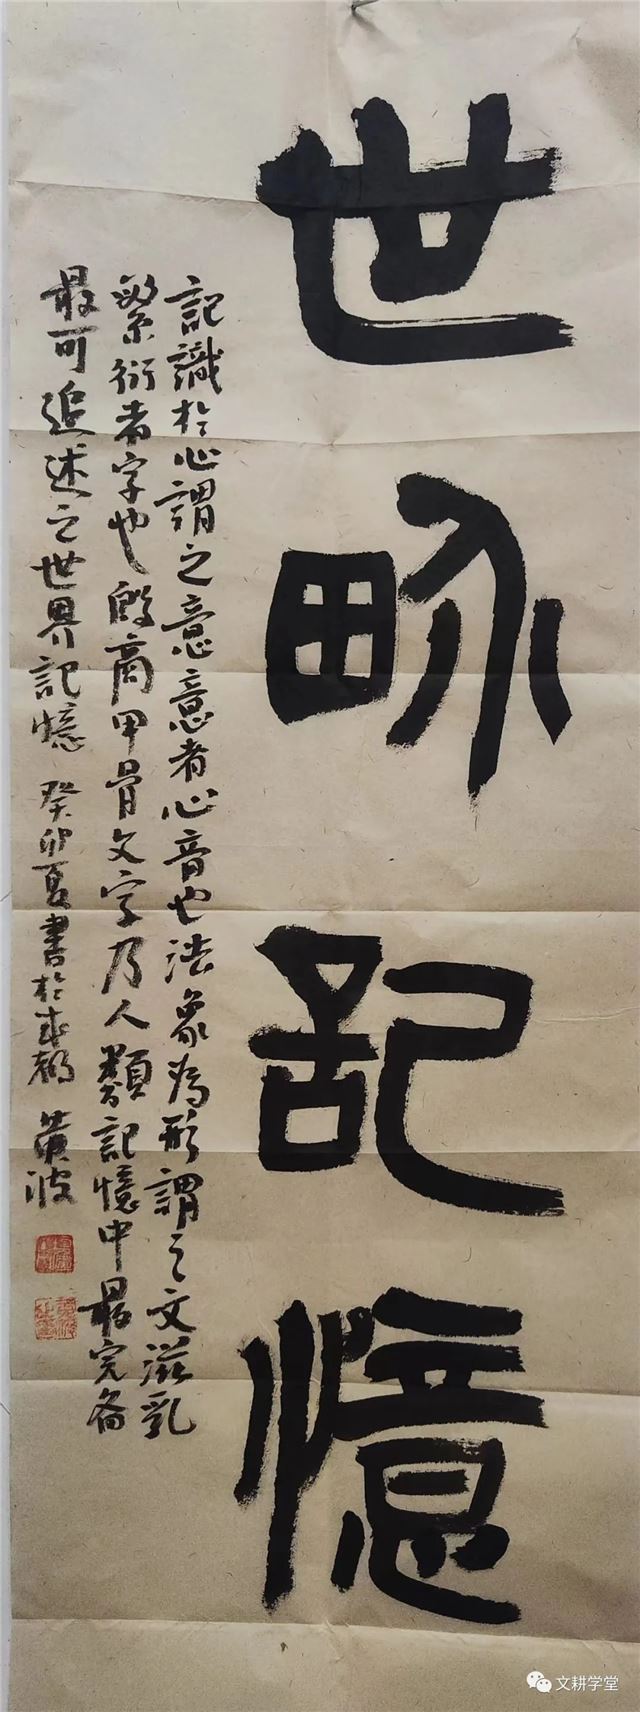 世畍記憶
記識於心謂之意意者心音也法象為形謂之文滋乳
繁衍者字也殷商甲骨文字乃人類記憶中最完備
最可追述之世界記憶 癸卯夏書於成都 黃波
文耕学堂